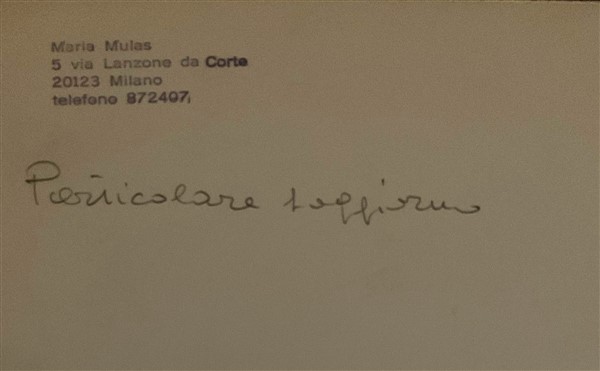 Maria Mulas
5 via Lanzone da Corte
20123 Milano
telefono 872407
Particolare soggiorno